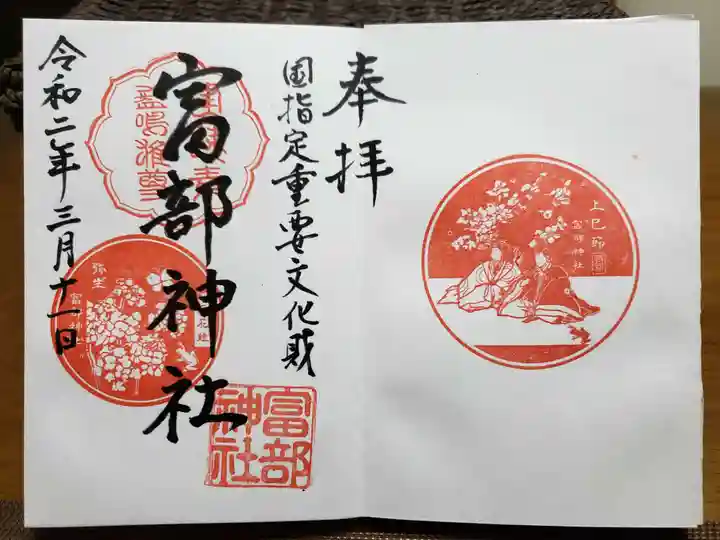 奉拝
国指定重要文化財
富部神社
令和二年三月十一日
富部
神社
弥生
上巳節
富部神社